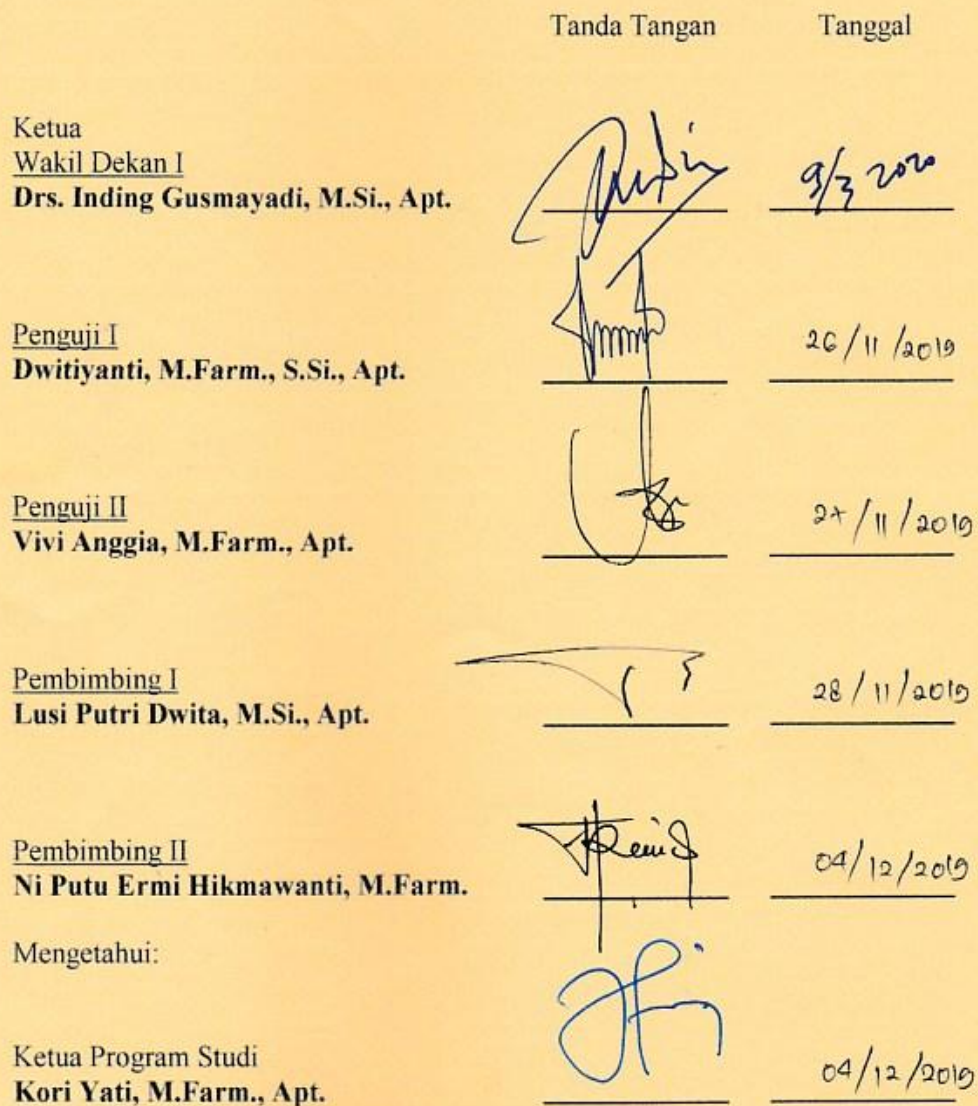 Tanda Tangan Tanggal
Ketua
Wakil Dekan I
Drs. Inding Gusmayadi, M.Si., Apt. 9/3 2020
Penguji I
Dwitiyanti, M.Farm., S.Si., Apt. 26/11/2019
Penguji II
Vivi Anggia, M.Farm., Apt. 27/11/2019
Pembimbing I
Lusi Putri Dwita, M.Si., Apt. 28/11/2019
Pembimbing II
Ni Putu Ermi Hikmawanti, M.Farm. 04/12/2019
Mengetahui:
Ketua Program Studi
Kori Yati, M.Farm., Apt. 04/12/2019